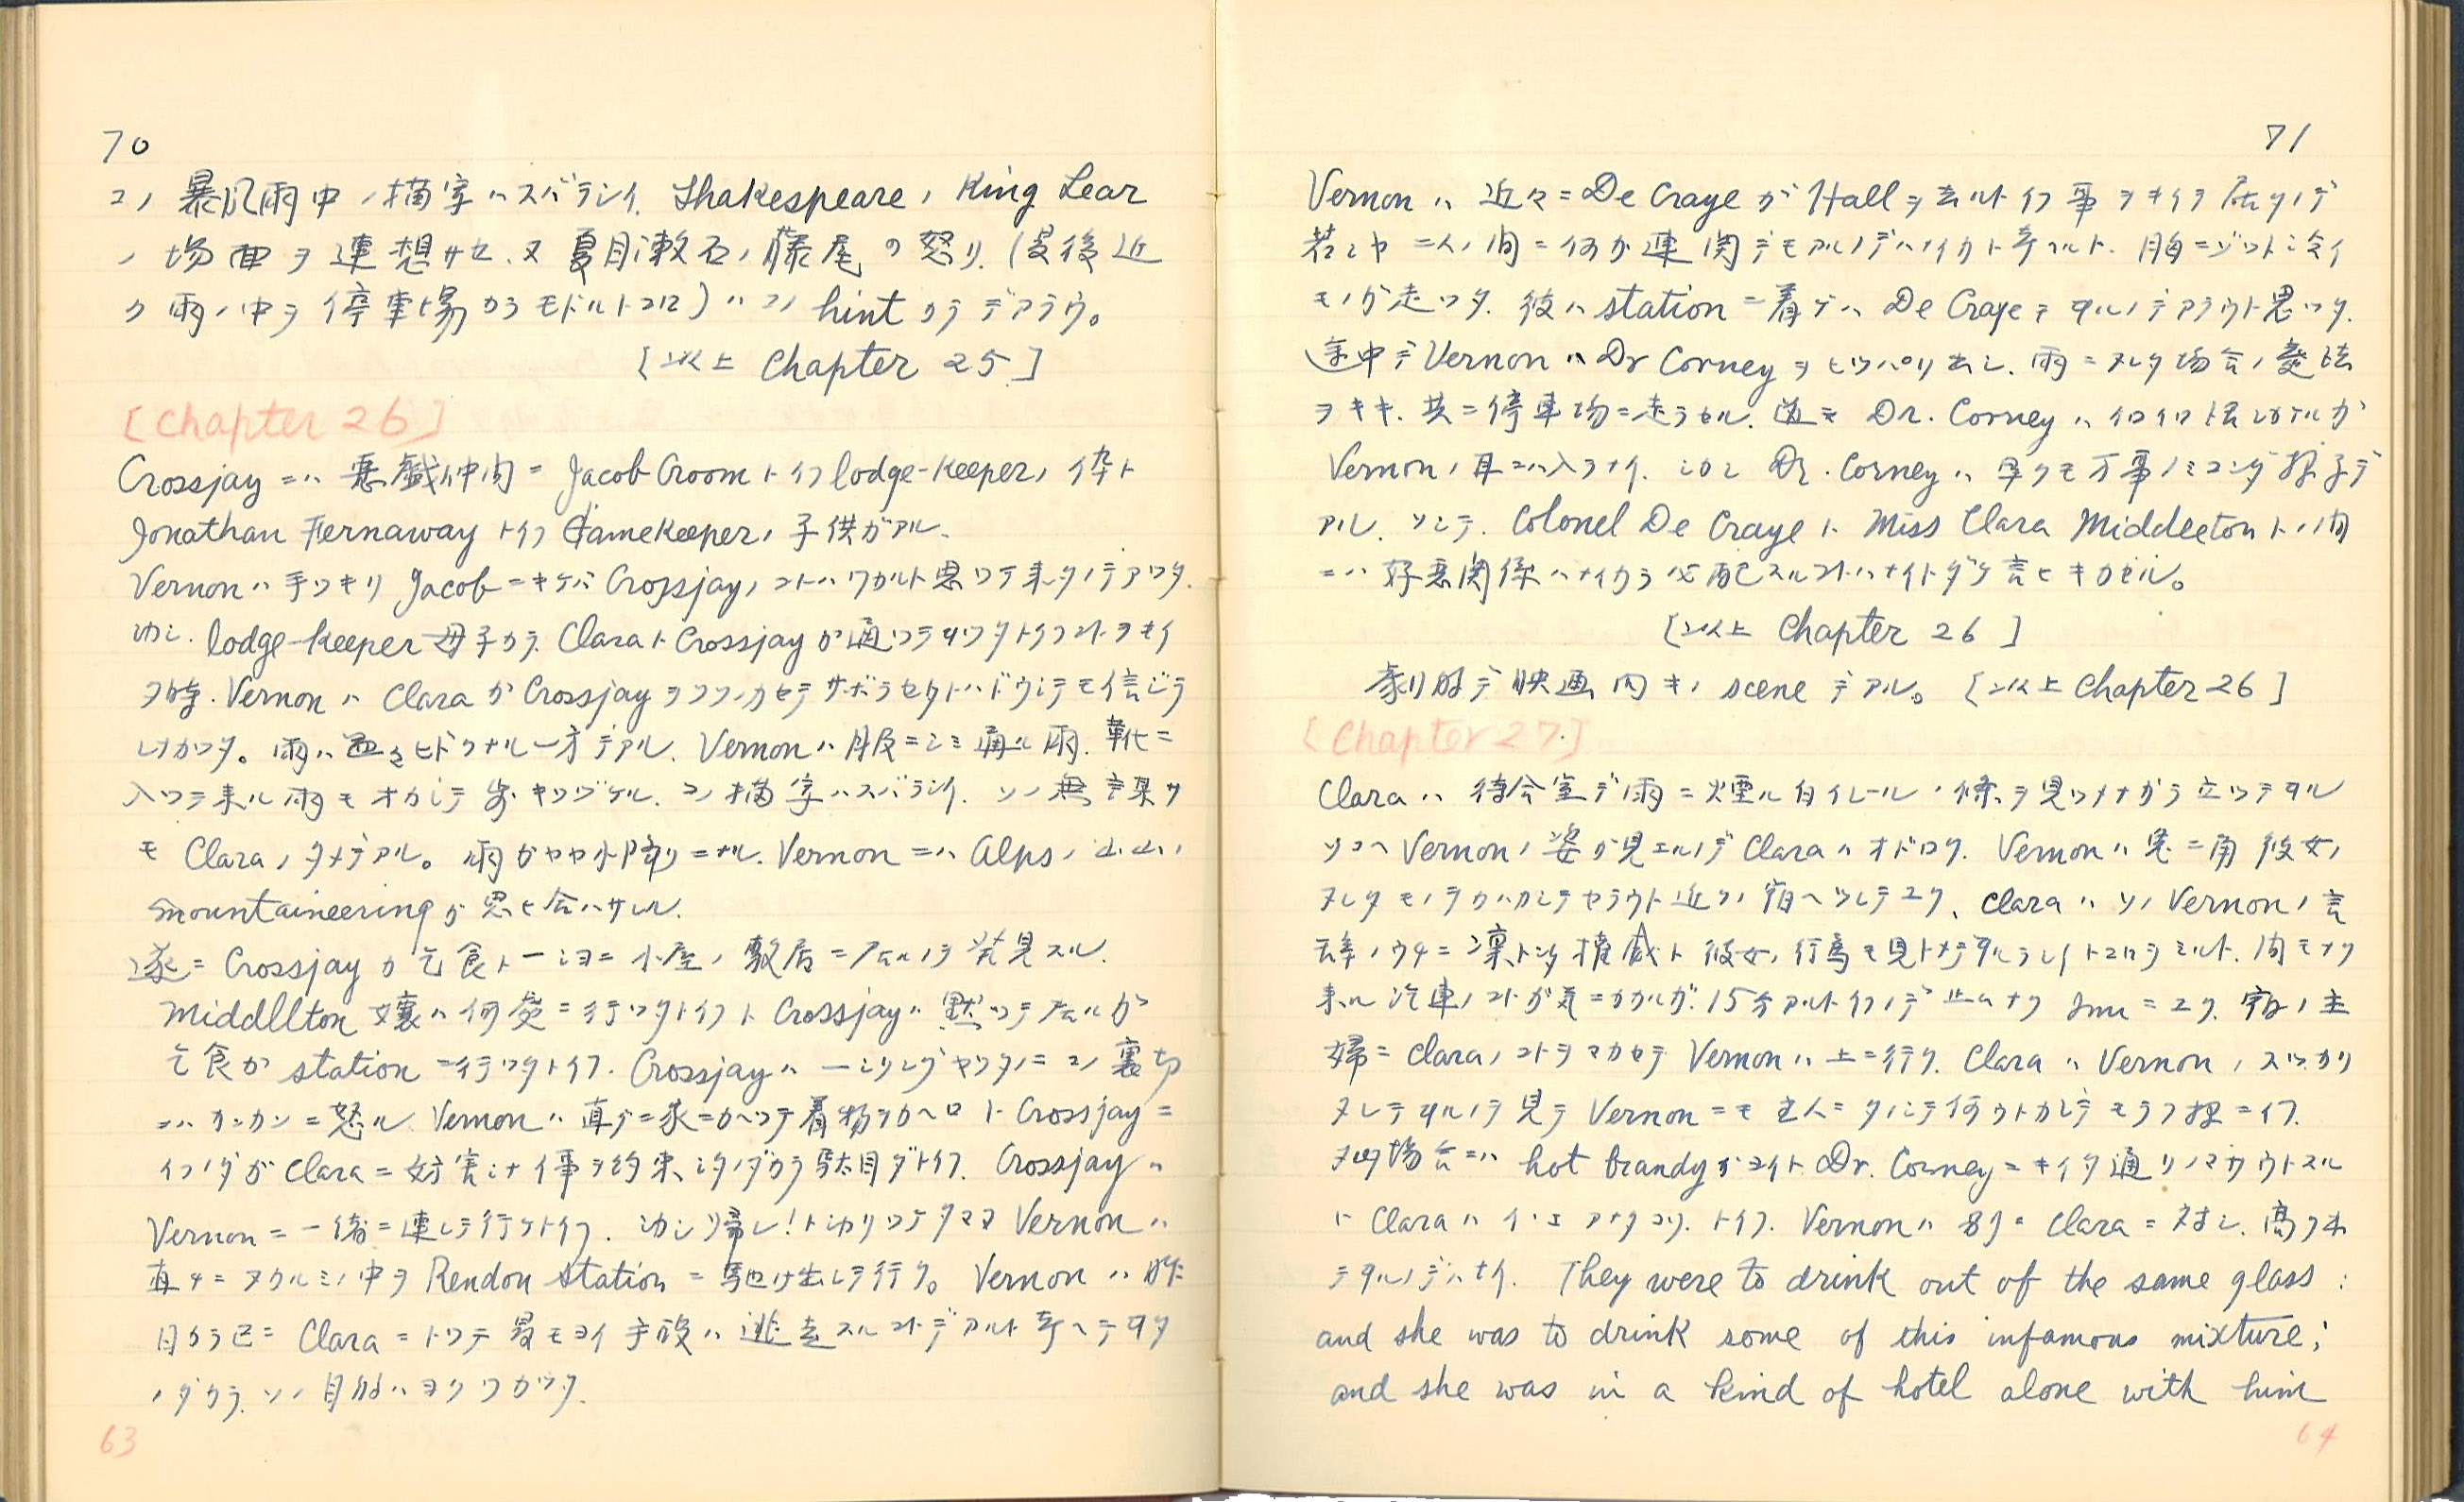 70
コノ 暴風雨中ノ描写ハスバラシイ. Shakespeare, King Lear
ノ場面ヲ連想サセ、又夏目漱石ノ藤尾の怒リ. (最後近
ク雨ノ中ヲ停車場カラモドルトコロ) ハコノ hint カラデアラウ。
[以上 Chapter 25]
[Chapter 26]
Crossjay ニハ 悪戯仲間ニ Jacob Croom トイフ lodge-keeper, 倅ト
Jonathan Fernaway トイフ Gamekeeper, 子供ガアル.
Vernon ハ手ツキリ Jacob ニキケバ Crossjay, コトハワカルト思ツテ来タノデアツタ.
シカシ. lodge-keeper 母子カラ Clara ト Crossjay ガ通ツテヰツタトイフコトヲキイ
タ時. Vernon ハ Clara ガ Crossjay ヲソソノカセテサボラセタトハドウシテモ信ジラ
レナカツタ。雨ハ益々ヒドクナル一方デアル. Vernon ハ服ニシミ通ル雨. 靴ニ
入ツテ来ル雨モオカシテ歩キツヅケル. コノ描写ハスバラシイ. ソノ無言果サ
モ Clara ノタメデアル。雨ガヤヤ小降リニナル. Vernon ニハ Alps ノ山山ノ
mountaineering ガ思ヒ合ハサレル.
遂ニ Crossjay ガ乞食ト一ショニ小屋ノ敷居ニ居ルノヲ発見スル.
Middllton 嬢ハ何処ニ行ツタトイフト Crossjay ハ黙ツテ居ルガ
乞食ガ station ニ行ツタトイフ. Crossjay ハ 一シリングヤツタノニコノ裏切
ニハカンカンニ怒ル. Vernon ハ直グニ家ニカヘツテ着物ヲカヘロト Crossjay ニ
イフノダガ Clara ニ妨害シナイ事ヲ約束シタノダカラ駄目ダトイフ. Crossjay ハ
Vernon ニ一緒ニ連レテ行ケトイフ. シカシ帰レ!トシカリツテタママ Vernon ハ
直チニヌカルミノ中ヲ Rendon Station ニ馳け出シテ行ク。Vernon ハ昨
日カラ已ニ Clara ニトツテ最モヨイ手段ハ逃走スルコトデアルト考ヘテヰタ
ノダカラ. ソノ目的ハヨクワカツタ.
63
71
Vernon ハ 近々ニ De Craye ガ Hall ヲ去ルトイフ事ヲキイテ居タノデ
若シヤ二人ノ間ニ何カ連関デモアルノデハナイカト考ヘルト. 胸ニゾツト冷イ
モノガ走ツタ. 彼ハ station ニ着ケバ De Craye ヰヰルノデアラウト思ツタ.
途中デ Vernon ハ Dr Corney ヲヒツパリ出シ. 雨ニヌレタ場合ノ処法
ヲキキ. 共ニ停車場ニ走ラセル. 道モ Dr. Corney ハイロイロ話シカケルガ
Vernon ノ耳ニハ入ラナイ. シカシ Dr. Corney ハ早クモ万事ノミコンダ様子デ
アル. ソシテ. Colonel De Craye ト Miss Clara Middleeton トノ間
ニハ好意関係ハナイカラ心配スルコトハナイトダケ言ヒキカセル。
[以上 Chapter 26]
劇的デ映画向キノ scene デアル。[以上 Chapter 26]
[Chapter 27]
Clara ハ 待合室デ雨ニ煙ル白イレールノ條ヲ見ツメナガラ立ツテヰル
ソコヘ Vernon ノ姿ガ見エルノデ Clara ハオドロク. Vernon ハ兎ニ角彼女ノ
ヌレタモノヲカハカシテヤラウト近クノ宿ヘツレテユク、Clara ハソノ Vernon ノ言
辞ノウチニ凛トシタ権威ト彼女ノ行為モ見トメテヰルラシイトコロヲミルト. 間モナク
来ル汽車ノコトガ気ニカカルガ. 15分アルトイフノデ止ムナク Inn ニユク. 宿ノ主
婦ニ Clara ノコトヲマカセテ Vernon ハ上ニ行ク. Clara ハ Vernon ノスツカリ
ヌレテヰルノヲ見テ Vernon ニモ主人ニタノンデ何ウトカシテモラフ様ニイフ.
ヌレタ場合ニハ hot brandy ガヨイト Dr. Corney ニキイタ通リノマサウトスル
ト Clara ハ イイエアナタコソ. トイフ. Vernon ハ 別ニ Clara ニ対シ. 高フ
テヰルノデハナイ. They were to drink out of the same glass :
and she was to drink some of this infamous mixture;
and she was in a kind of hotel alone with him
64